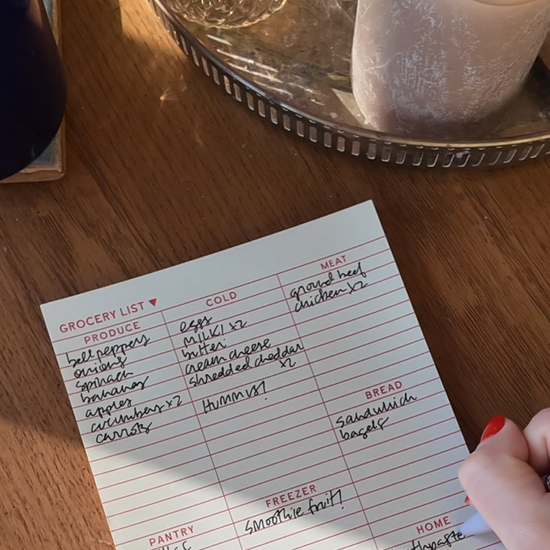 GROCERY LIST ▼
PRODUCE
bell peppers
onions
spinach
bananas
apples
cucumbers x2
carrots
COLD
eggs
MILK! x2
butter
cream cheese
shredded cheddar
x2
HUMMUS!
MEAT
ground beef
chicken x2
BREAD
sandwich
bagels
FREEZER
smoothie fruit!
PANTRY
HOME